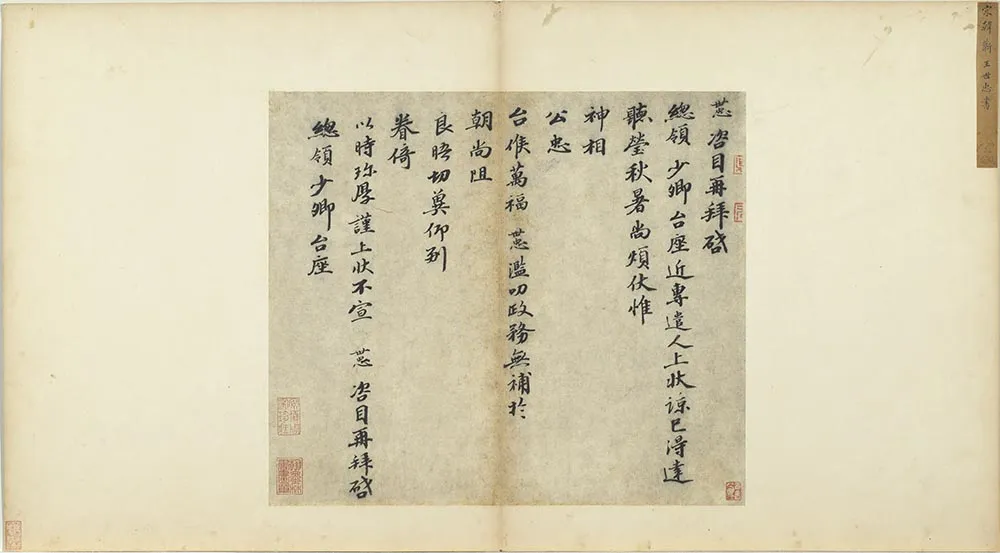 宋韓蘄王世忠書
世忠 咨目再拜啓
總領少卿台座近專遣人上狀諒已得達
聽瑩秋暑尚煩伏惟
神相
公忠
台候萬福 世忠 濫叨政務無補於
朝尚阻
良晤切冀仰副
眷倚
以時珎厚謹上狀不宣 世忠 咨目再拜啓
總領少卿台座